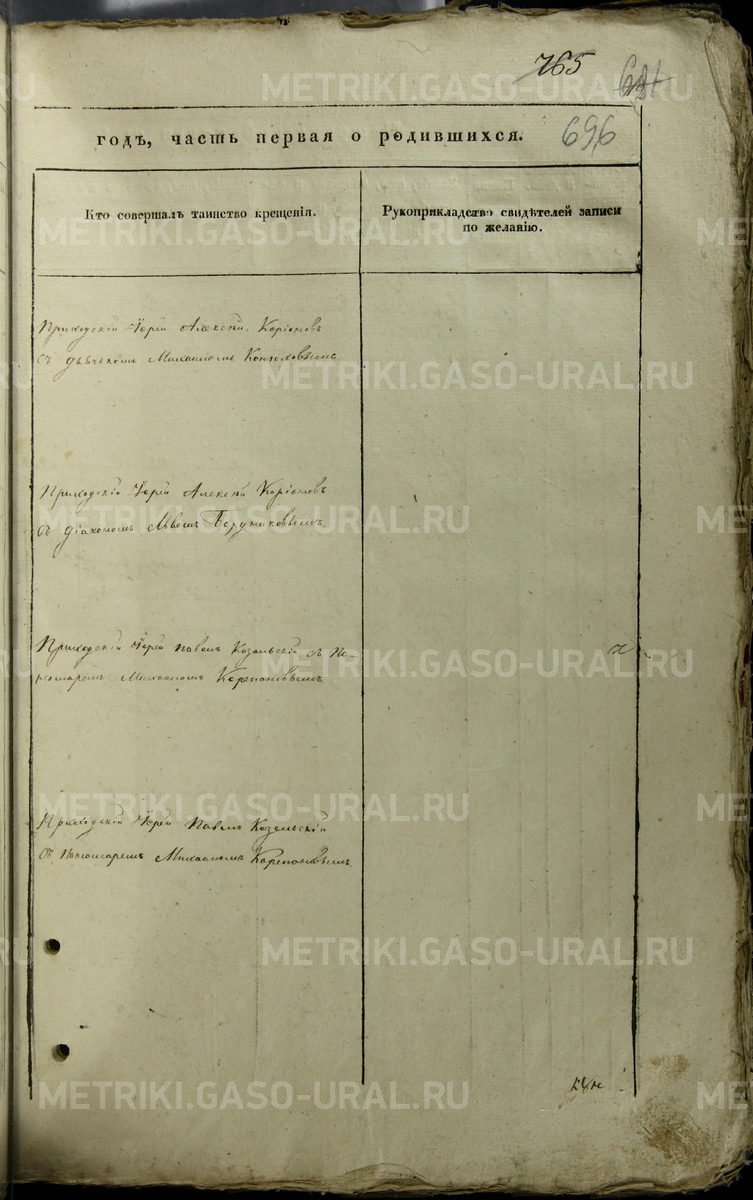 765
696
годъ, часть первая о родившихся.
Кто совершалъ таинство крещенія.
Рукоприкладство свидѣтелей записи
по желанію.
Приходскій Іерей Алексѣй
съ Михаиломъ
Приходскій Іерей Алексѣй
съ діакономъ Львомъ
Приходскій Іерей Павелъ Козельскій съ По-
номаремъ Михаиломъ Карепановымъ
Приходскій Іерей Павелъ Козельскій
съ Пономаремъ Михаиломъ Карепановымъ
METRIKI.GASO-URAL.RU